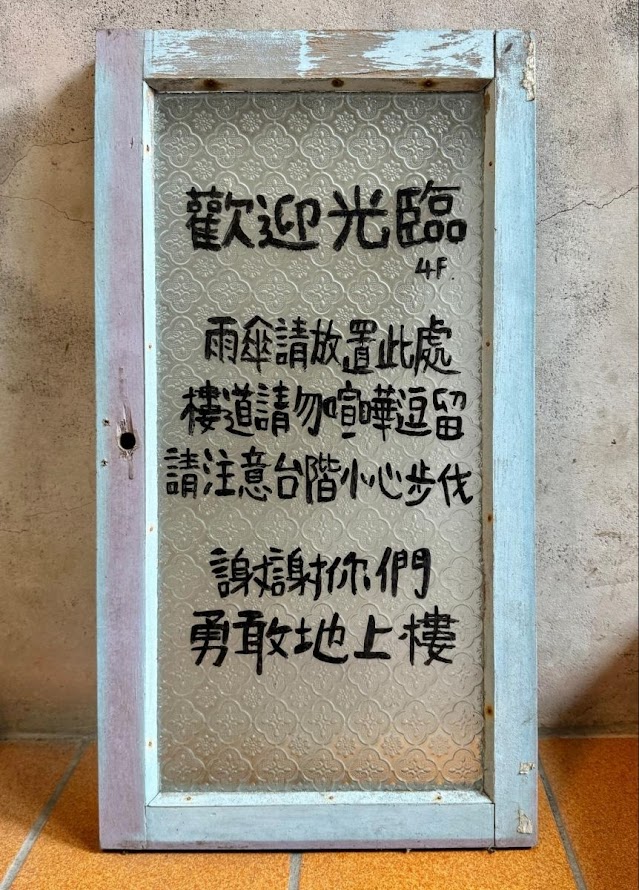 歡迎光臨
4F.
雨傘請放置此處
樓道請勿喧嘩逗留
請注意台階小心步伐
謝謝你們
勇敢地上樓